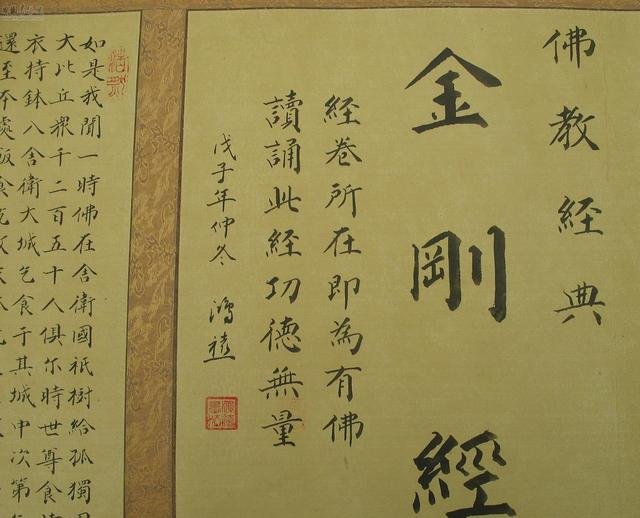 佛教經典
金剛經
經卷所在即為有佛
讀誦此經功德無量
戊子年仲冬 鴻
如是我聞一時佛在舍衛國祇樹給孤獨
大比丘眾千二百五十人俱尔時世尊食
衣持鉢入舍衛大城乞食于其城中次第
還至本處飯食訖收衣